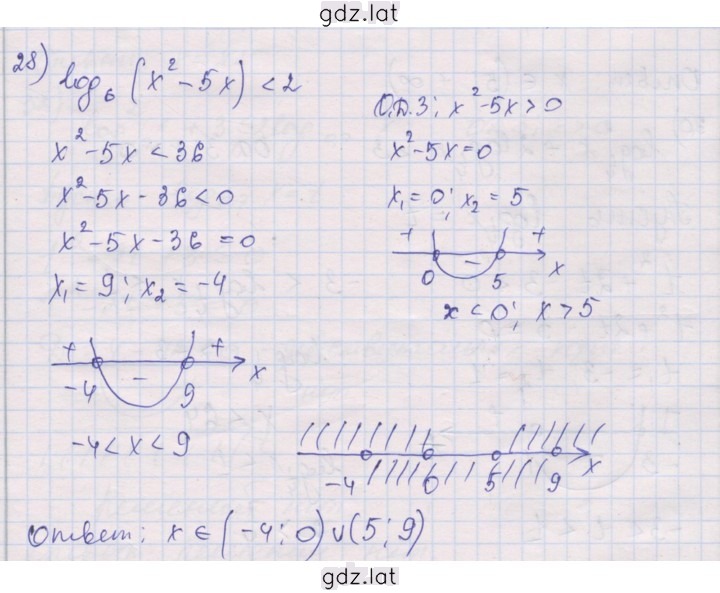 gdz.lat
28) log₆ (x² - 5x) < 2
x² - 5x < 36
x² - 5x - 36 < 0
x² - 5x - 36 = 0
x₁ = 9; x₂ = -4
+ - + x
-4 9
-4 < x < 9
О.Д.З; x² - 5x > 0
x² - 5x = 0
x₁ = 0; x₂ = 5
+ - + x
0 5
x < 0; x > 5
-4 0 5 9 x
Ответ: x ∈ (-4; 0) ∪ (5; 9)
gdz.lat